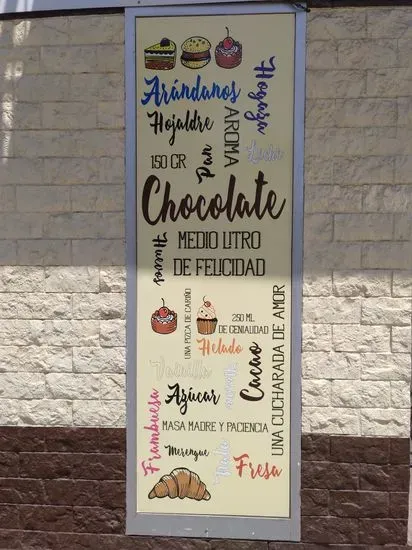 Arándanos
Hogaza
Hojaldre
AROMA
Leche
150 GR
Pan
Chocolate
Huevos
MEDIO LITRO
DE FELICIDAD
UNA PIZCA DE CARIÑO
250 ML
DE GENIALIDAD
Helado
Vainilla
Cacao
UNA CUCHARADA DE AMOR
Azúcar
Frambuesa
MASA MADRE Y PACIENCIA
Merengue
Nata
Fresa